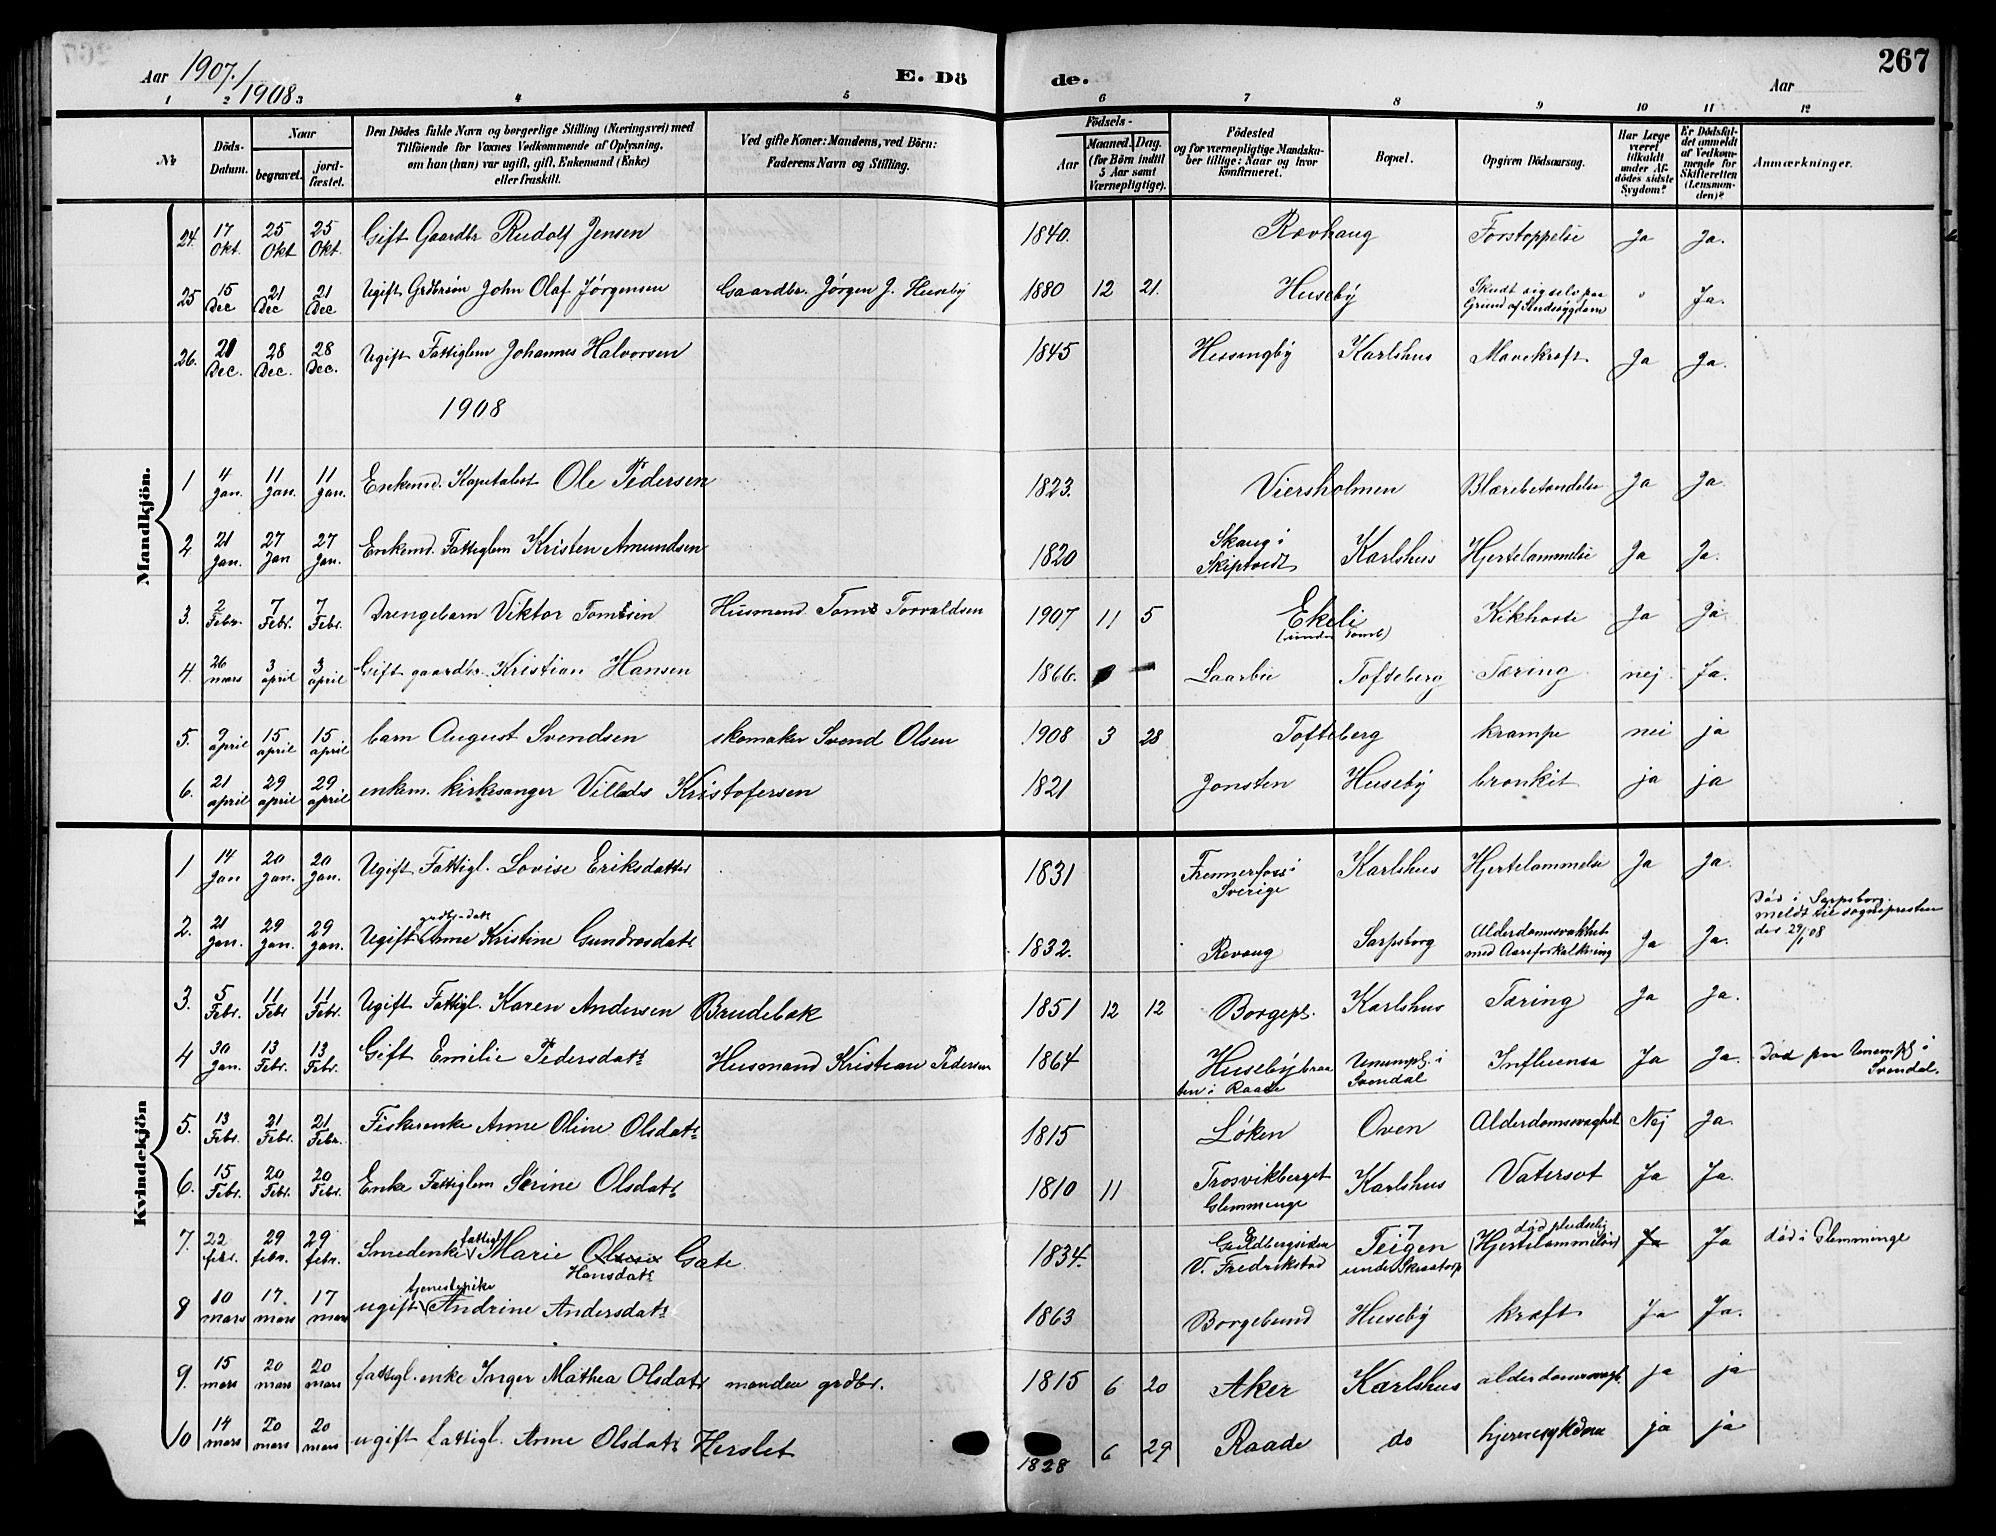 Aar 1907./1908
E. Dö de.
Aar
267
1 2 3 4 5 6 7 8 9 10 11 12
No
Döds-Datum.
Naar
begravet.
jord-fæstet.
Den Dödes fulde Navn og borgerlige Stilling (Næringsvei) med
Tilföiende for Voxnes Vedkommende af Oplysning,
om han (hun) var ugift, gift, Enkemand (Enke)
eller fraskilt.
Ved gifte Koner: Mandens, ved Börn:
Faderens Navn og Stilling.
Födsels-
Aar
Maaned. Dag.
(for Börn indtil
5 Aar samt
Værnepligtige).
Födested
og for værnepligtige Mandska-
ber tillige: Naar og hvor
konfirmeret.
Bopæl.
Opgiven Dödsaarsag.
Har Læge
været
tilkaldt
under Af-
dödes sidste
Sygdom?
Er Dödsfal-
det anmeldt
af Vedkom-
mende for
Skifteretten
(Lensman-
den)?
Anmærkninger.
Mandkjön.
24. 17 Okt. 25 Okt 25 Okt. Gift Gaardbr Rudolf Jensen 1840. Rævhaug Forstoppelse Ja Ja.
25 15 Dec 21 Dec 21 Dec Ugift Grdbrsøn John Olaf Jørgensen Gaardbr. Jørgen J. Huseby 1880 12 21. Huseby Skudt sig selv paa Grund af Sindssygdom " Ja.
26. 21 Dec. 28 Dec. 28 Dec. Ugift Fattiglem Johannes Halvorsen 1845 Hessingby Karlshus Mavekræft Ja Ja.
1908
1 4 Jan. 11 Jan. 11 Jan. Enkemd. Kapitalist Ole Pedersen 1823. Viersholmen Blærebetændelse Ja Ja.
2 21 Jan. 27 Jan 27 Jan. Enkemd. Fattiglem Kristen Amundsen 1820 Skaug i Skiptvedt Karlshus Hjertelammelse Ja Ja.
3. 2 Febr. 7 Febr. 7 Febr. Drengebarn Viktor Tomsen Husmand Toms Torvaldsen 1907 11 5 Ekeli (under Tomb) Kikhoste Ja Ja.
4. 26 mars 3 april 3 april Gift gaardbr. Kristian Hansen 1866. Laarbu Tofteberg Tæring nej. Ja.
5. 9 april 15 april 15 april barn August Svendsen skomaker Svend Olsen 1908 3 28 Tofteberg krampe nei ja
6. 21 april 29 april 29 april enkem. kirkesanger Villads Kristofersen 1821 Jonsten Huseby bronkit ja ja
Kvindekjön
1 14 Jan 20 Jan. 20 Jan. Ugift Fattigl. Lovise Eriksdatter 1831 Frennerfoss i Sverige Karlshus Hjertelammelse Ja Ja.
2. 21 Jan. 29 Jan. 29 Jan. Ugift grdbr.dat. Anne Kristine Gundrosdatr 1832. Revaug Sarpsborg Alderdomssvakhet med Aareforkalkning Ja Ja. Død i Sarpsborg. meldt til sognepresten der 29/1 08
3. 5 Febr. 11 Febr 11 Febr. Ugift Fattigl. Karen Andersen Brudebak 1851 12 12 Borgepl. Karlshus Tæring Ja Ja.
4 30 Jan. 13 Febr. 13 Febr. Gift Emilie Pedersdatr Husmand Kristian Pedersen 1864 Husebybraaten i Raade Unumpl. i Svendal Influensa Ja Ja. Død paa Unumpl i Svendal.
5. 13 Febr. 21 Febr. 21 Febr. Fiskerenke Anne Oline Olsdatr 1815 Løken Oven Alderdomssvaghet Nej Ja.
6. 15 Febr. 20 Febr. 20 Febr. Enke Fattiglem Serine Olsdatr 1810 11 Trosvikberget Glemminge Karlshus Vatersot Ja Ja.
7. 22 febr. 29 febr. 29 febr. Smedenke fattigl. Marie Olsen Hansdatr Gate 1834. Guldbergsiden V. Fredrikstad Teigen under Skraatorp død pludselig (Hjertelammelse) Ja Ja død i Glemminge
8 10 mars 17 mars 17 mars ugift tjenestepike Andrine Andersdatr 1863 Borgebund Huseby kræft Ja Ja.
9. 15 mars 20 mars 20 mars fattigl. enke Inger Mathea Olsdatr manden grdbr. 1815 6 20 Aker Karlshus alderdomssvagh. ja ja
10 14 mars 20 mars 20 mars ugift fattigl. Anne Olsdatr Herslet 1828 6 29 Raade do hjernesykdom ja ja